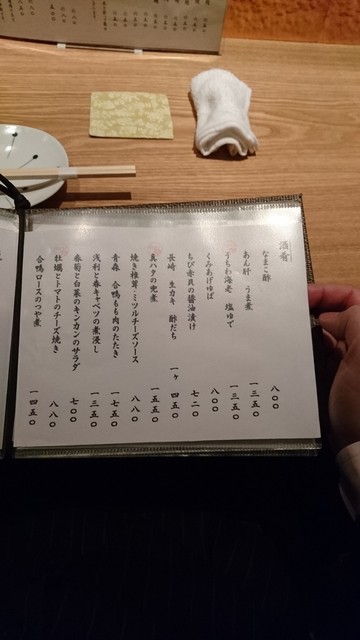 酒肴
なまこ酢 八〇〇
あん肝 うま煮 一三五〇
うちわ海老 塩ゆで 一三五〇
くみあげゆば 八〇〇
ちび赤貝の醤油漬け 七二〇
長崎 生カキ 酢だち 一ヶ 四五〇
真ハタの兜煮 一五五〇
焼き椎茸・ミツルチーズソース 八八〇
青森 合鴨もも肉のたたき 一七五〇
浅利と春キャベツの煮浸し 一三五〇
春菊と白菜のキンカンのサラダ 七〇〇
牡蠣とトマトのチーズ焼き 八八〇
合鴨ロースのつや煮 一四五〇